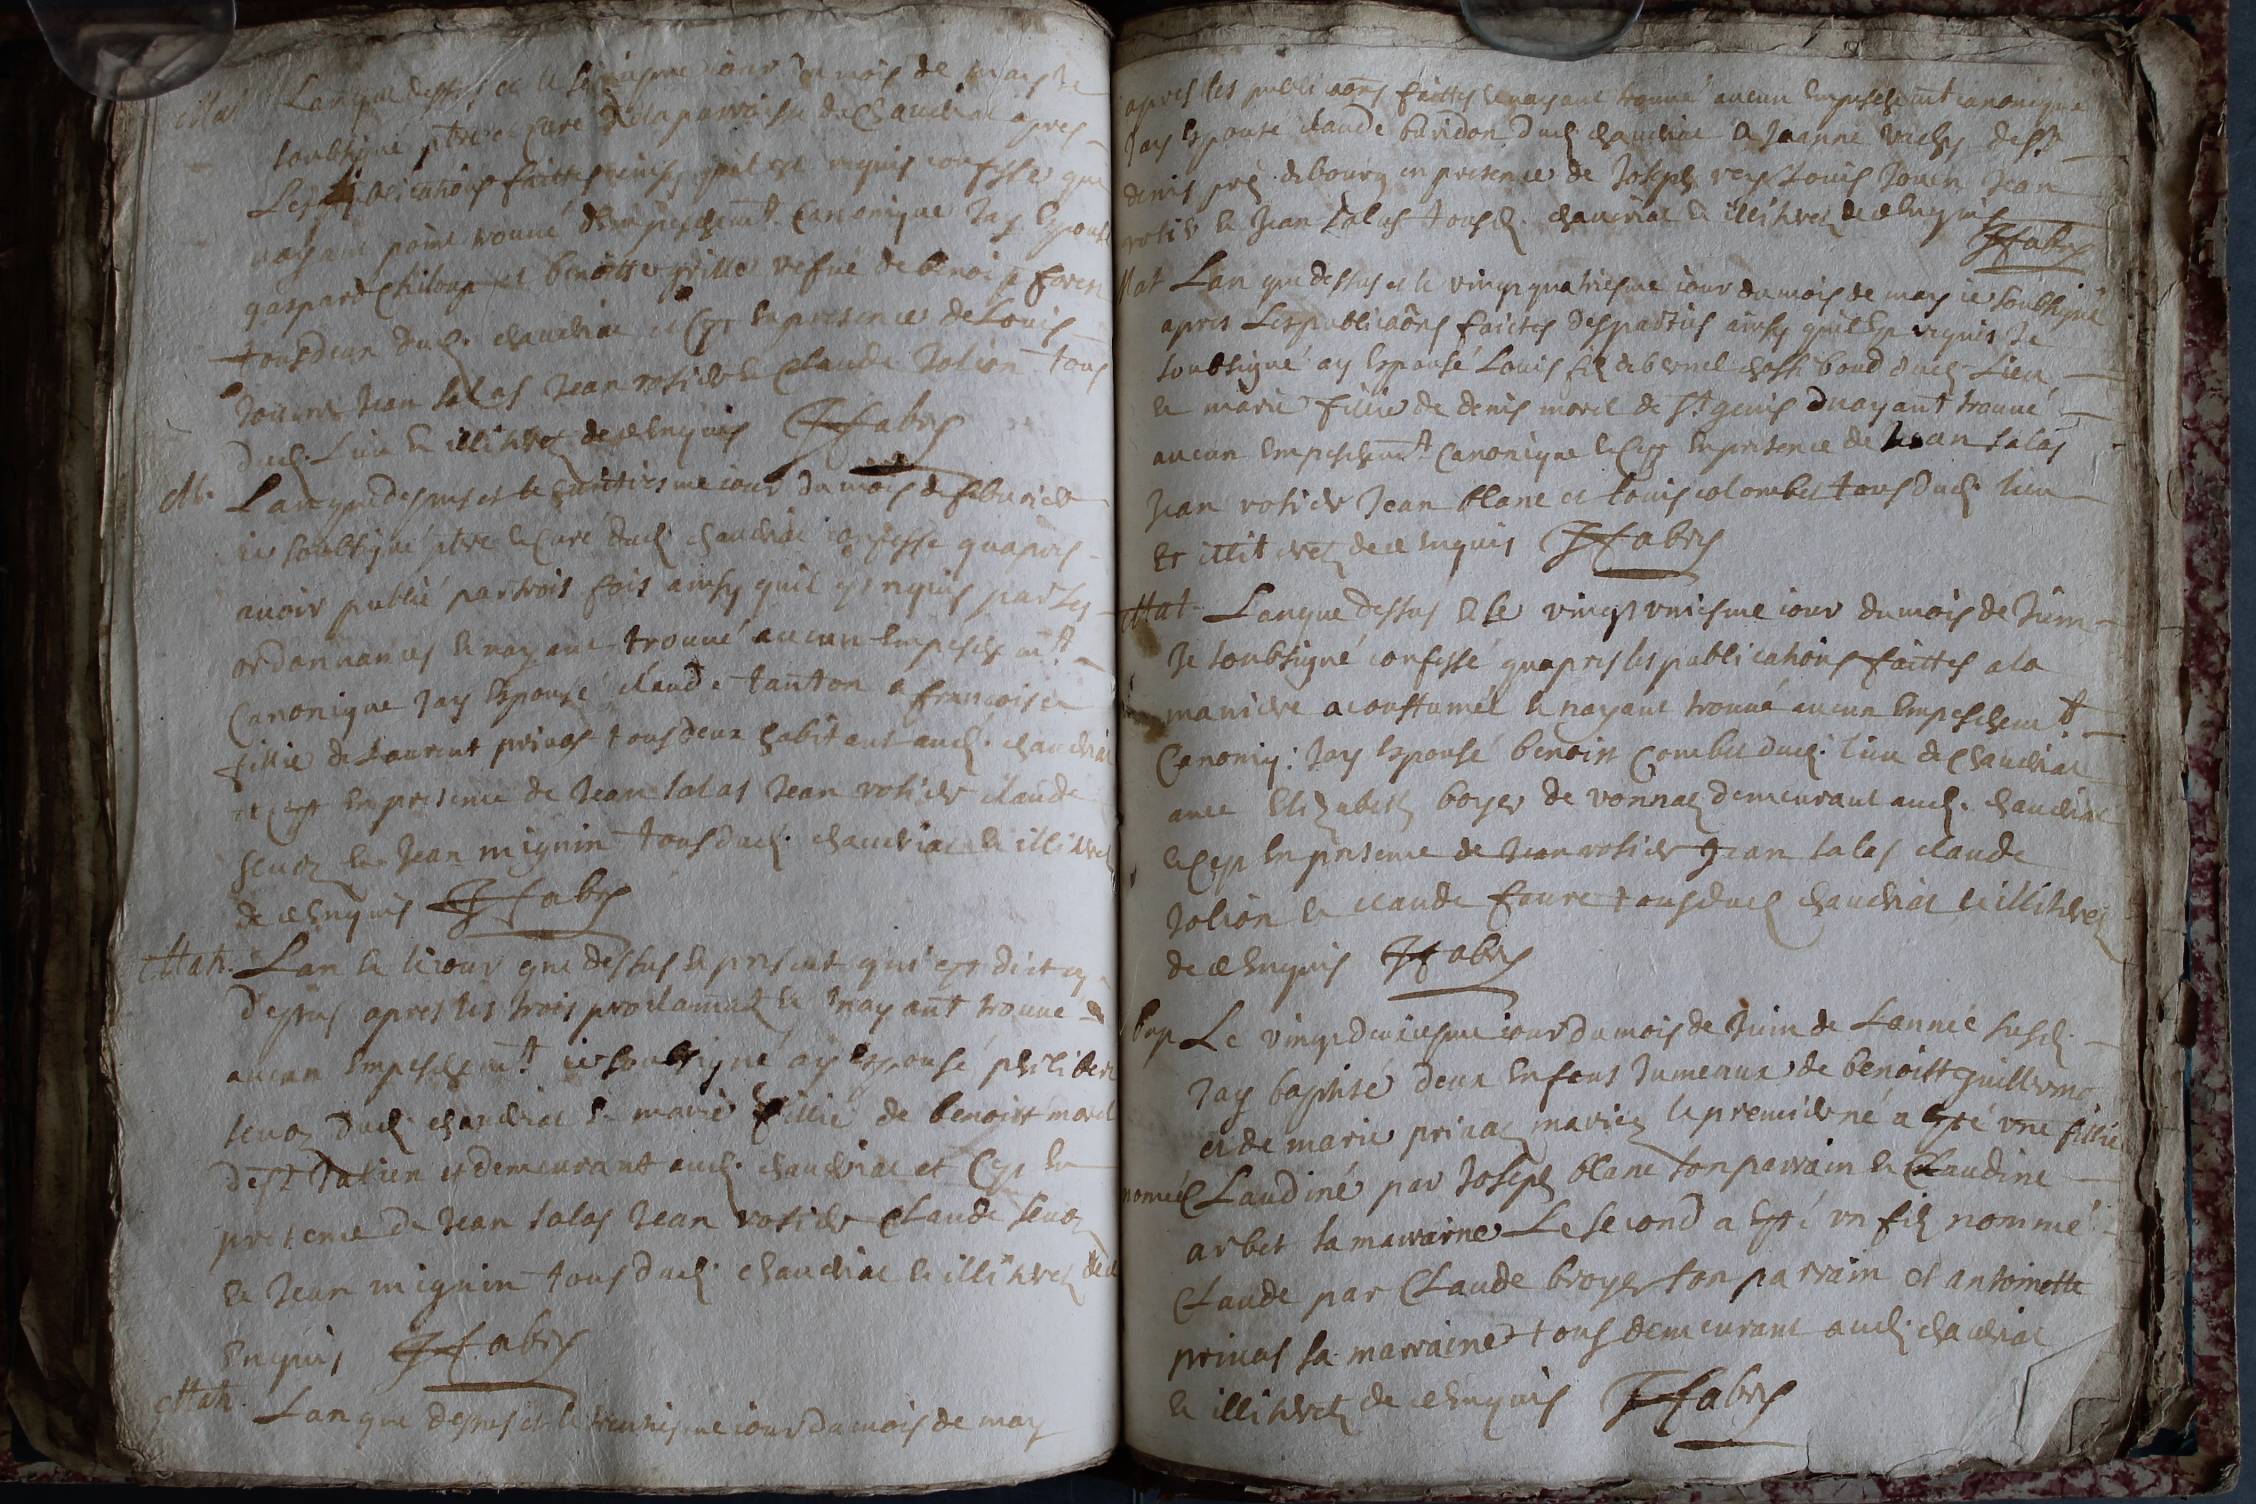 Mat Lan que dessus et le iour du mois de mars Je
soubsigné pbre et curé de la parroisse de chauriat apres
Les publications faittes ainsy quil est requis confesse que
nayant point trouué dempeschemt. Canonique Jay Espousé
gaspard chiloup et benoitte grille vefue de benoist forest
tous deux dud. chauriat et Cest En presence de Louis
Jean salas Jean rosier & Claude Jolion tous
dud. Lieu & illitrez de ce Enquis JFabry
M. Lan que dessus et le huittiesme iour du mois de febvrier
ie soubsigné pbre & Curé dud. chauriat confesse quapres
auoir publié par trois fois ainsy quil est requis par Les
ordonnances & nayant trouué aucun Empeschemt.
Canonique Jay Espousé claude tanton & francoise
fillie de Laurent priuas tous deux habitant aud. chauriat
et Cest En presence de Jean salas Jean rosier claude
seuoz & Jean mignin tous dud. chauriat & illitrez
de ce Enquis JFabry
Mat. Lan & le iour que dessus & present qui est dict cy
dessus apres les trois proclamat & nayant trouue
aucun Empeschemt. ie soubsigné ay Espousé philibert
seuoz dud. chauriat & marie fillie de benoist morel
de st Julien et demeurant aud. chauriat et Cest En
presence de Jean salas Jean rosier Claude seuoz
& Jean mignin tous dud. chauriat & illitrez de ce
Enquis JFabry
Mat. Lan que dessus et le iour du mois de may
apres les publicaons faittes & nayant trouué aucun Empeschemt canonique
Jay Espouse claude buridon dud. chauriat & Jeanne vichy de St
denis pres de bourg en presence de Joseph rey Louis Jouen Jean
rosier & Jean salas tous d. chauriat & illitrez de ce Enquis
JFabry
Mat Lan que dessus et le vingt quatriesme iour du mois de may ie soubsigné
apres Les publicaons faictes des parties ainsy quil Est requis Je
soubsigné ay Espousé Louis filz de bernel bond dud. Lieu
& marie fillie de denis morel de st genis nayant trouué
aucun Empeschemt Canonique & Cest En presence de Jean salas
Jean rosier Jean blanc et Louis colombet tous dud. lieu
Et illitrez de ce Enquis JFabry
Mat. Lan que dessus & le vingt vniesme iour du mois de Juin
Je soubsigné confesse quapres les publications faittes a la
maniere acousttumée & nayant trouué aucun Empeschemt.
Canoniq: Jay Espousé benoist Combet dud. lieu de chauriat
auec Elizabeth boyer de vonnaz demeurant aud. chauriat
& Cest En presence de Jean rosier Jean salas claude
Jolion & claude faure tous dud. chauriat & illitrez
de ce Enquis JFabry
bap Le vingt deuiesme iour du mois de Juin de Lannée susd.
Jay baptisé deux Enfens Jumeaux de benoitt guillermo
et de marie priuaz mariez le premier né a Esté vne fillie
nomée Claudine par Joseph blanc son parrain & Claudine
arbet sa marraine Le second a Esté vn filz nommé
Claude par Claude broyer son parrain et antoinette
priuas sa marraine tous demeurant aud. chauriat
& illitrez de ce Enquis JFabry